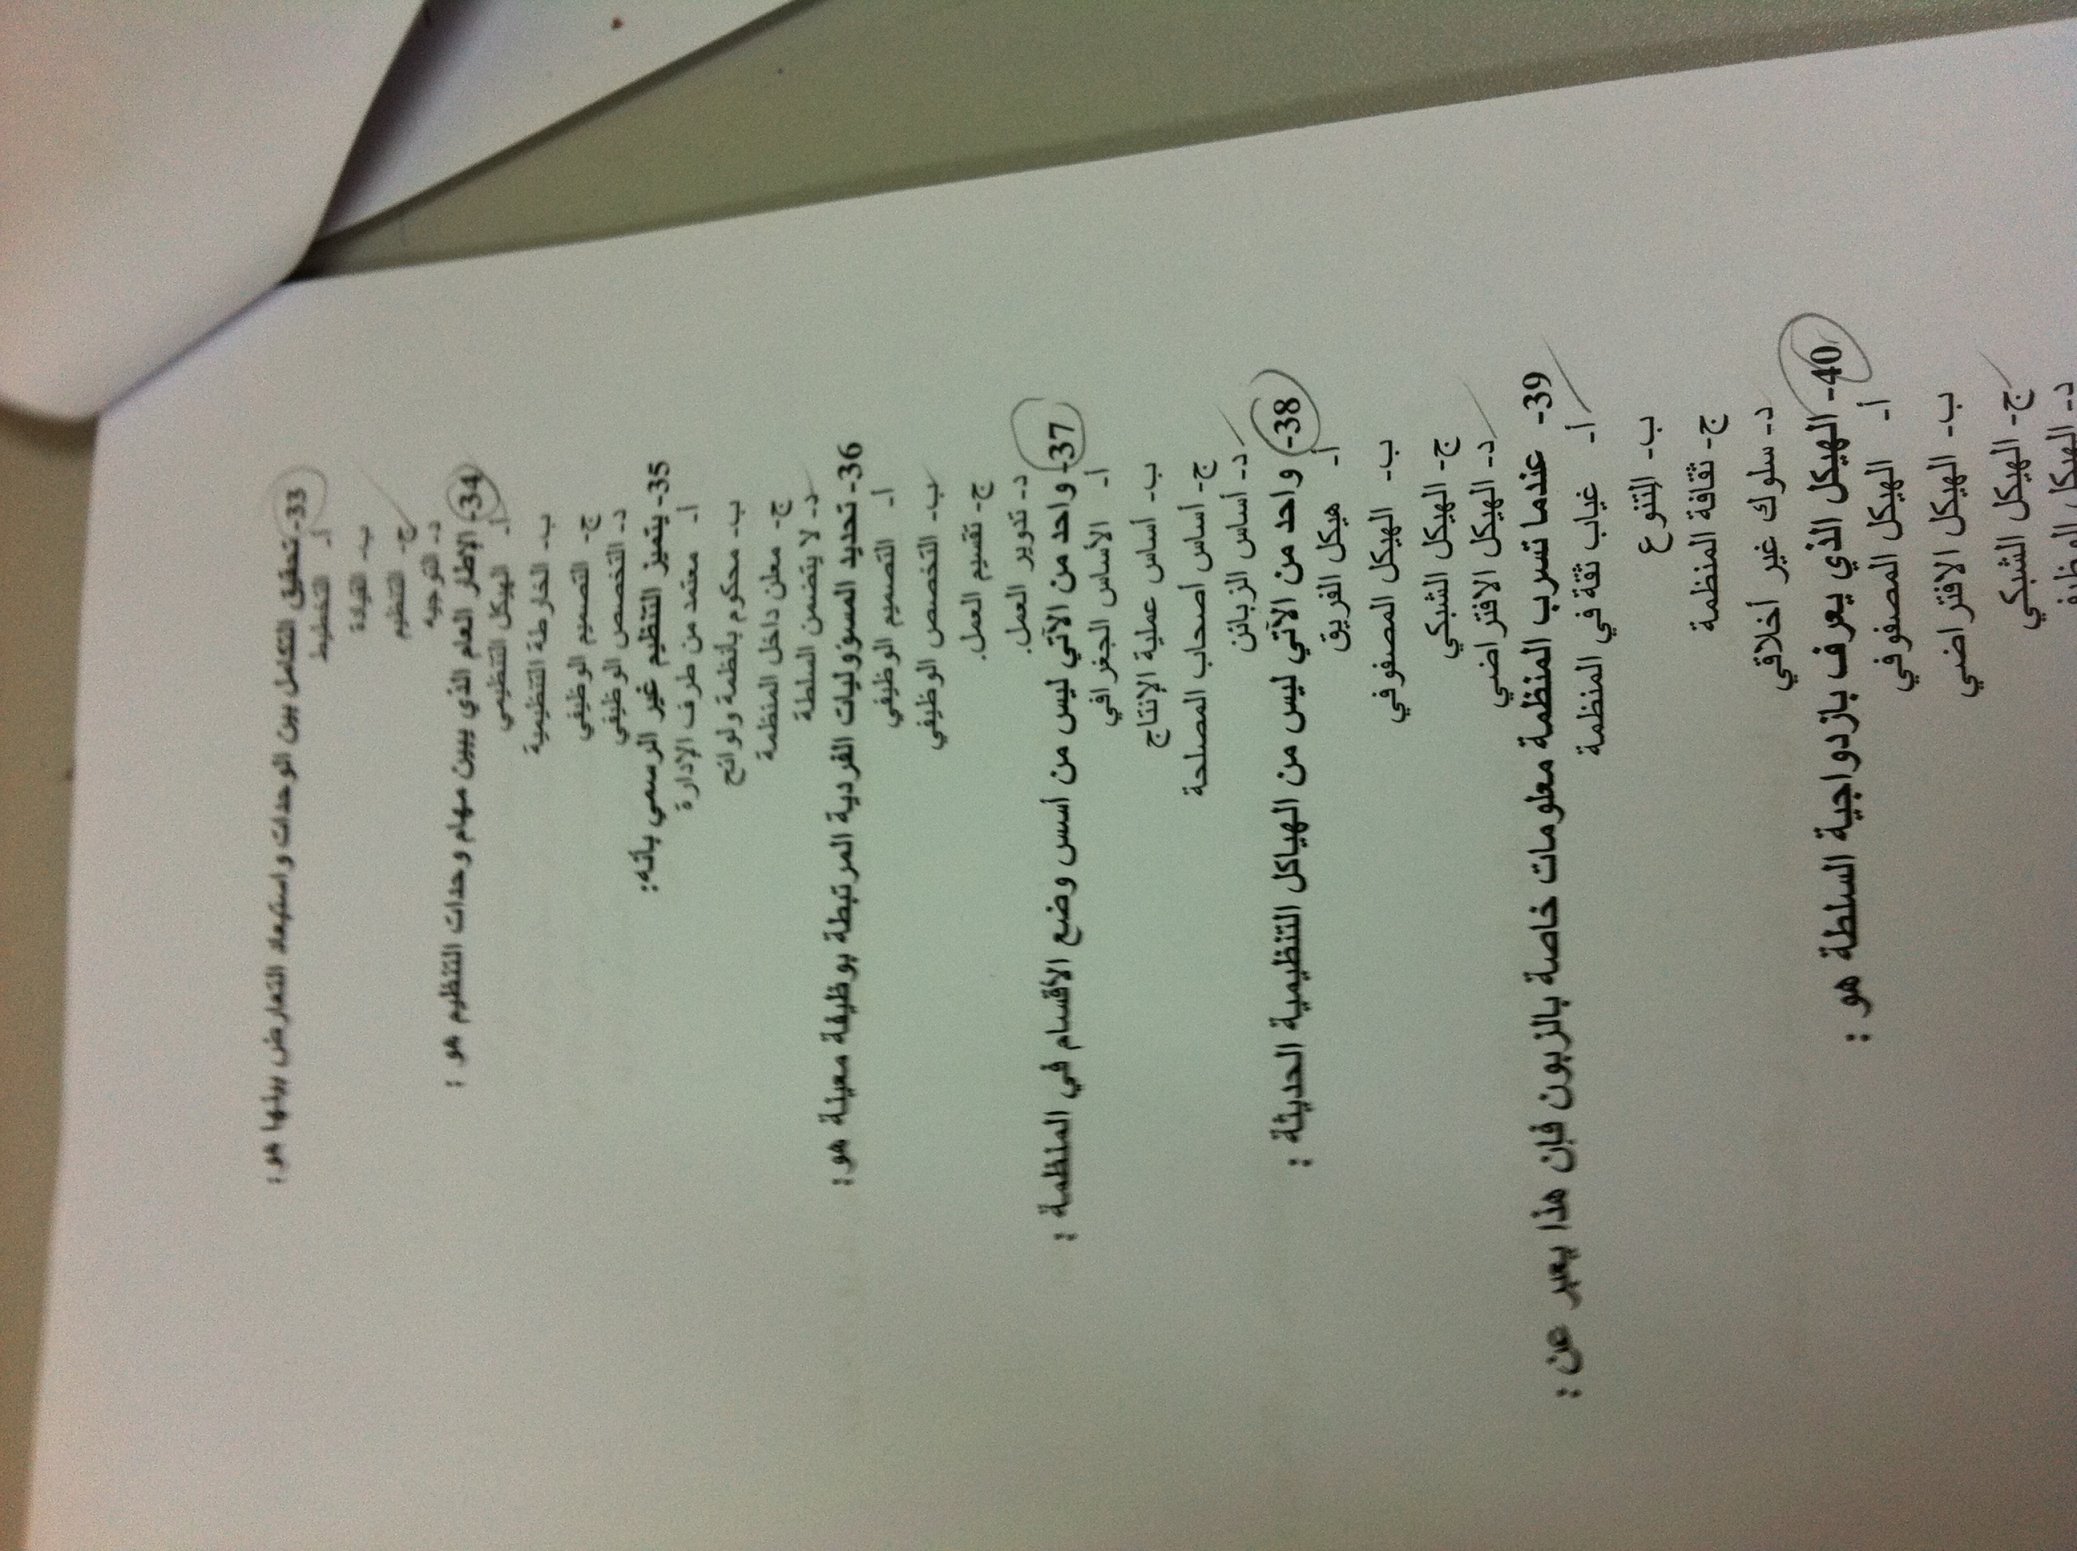 33- تحقيق التكامل بين الوحدات واستبعاد التعارض بينها هو:
أ- التخطيط
ب- القيادة
ج- التنظيم
د- التوجيه
34- الإطار العام الذي يبين مهام وحدات التنظيم هو :
أ- الهيكل التنظيمي
ب- الخارطة التنظيمية
ج- التصميم الوظيفي
د- التخصص الوظيفي
35- يتميز التنظيم غير الرسمي بأنه:
أ- معتمد من طرف الإدارة
ب- محكوم بأنظمة ولوائح
ج- معلن داخل المنظمة
د- لا يتضمن السلطة
36- تحديد المسؤوليات الفردية المرتبطة بوظيفة معينة هو:
أ- التصميم الوظيفي
ب- التخصص الوظيفي
ج- تقسيم العمل.
د- تدوير العمل.
37- واحد من الآتي ليس من أسس وضع الأقسام في المنظمة :
أ- الأساس الجغرافي
ب- أساس عملية الإنتاج
ج- أساس أصحاب المصلحة
د- أساس الزبائن
38- واحد من الآتي ليس من الهياكل التنظيمية الحديثة :
أ- هيكل الفريق
ب- الهيكل المصفوفي
ج- الهيكل الشبكي
د- الهيكل الافتراضي
39- عندما تسرب المنظمة معلومات خاصة بالزبون فإن هذا يعبر عن :
أ- غياب ثقة في المنظمة
ب- التنوع
ج- ثقافة المنظمة
د- سلوك غير أخلاقي
40- الهيكل الذي يعرف بازدواجية السلطة هو :
أ- الهيكل المصفوفي
ب- الهيكل الافتراضي
ج- الهيكل الشبكي
د- الهيكل